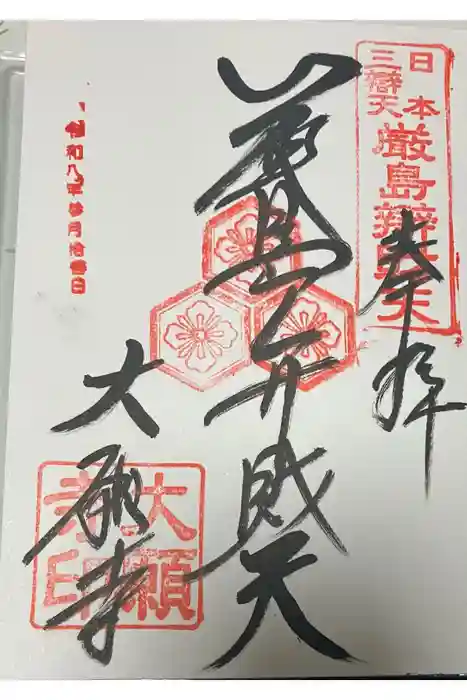 日本
三辯天
厳島辯財天
奉拝
厳島弁財天
令和八年参月拾壹日
大願寺
大願寺印